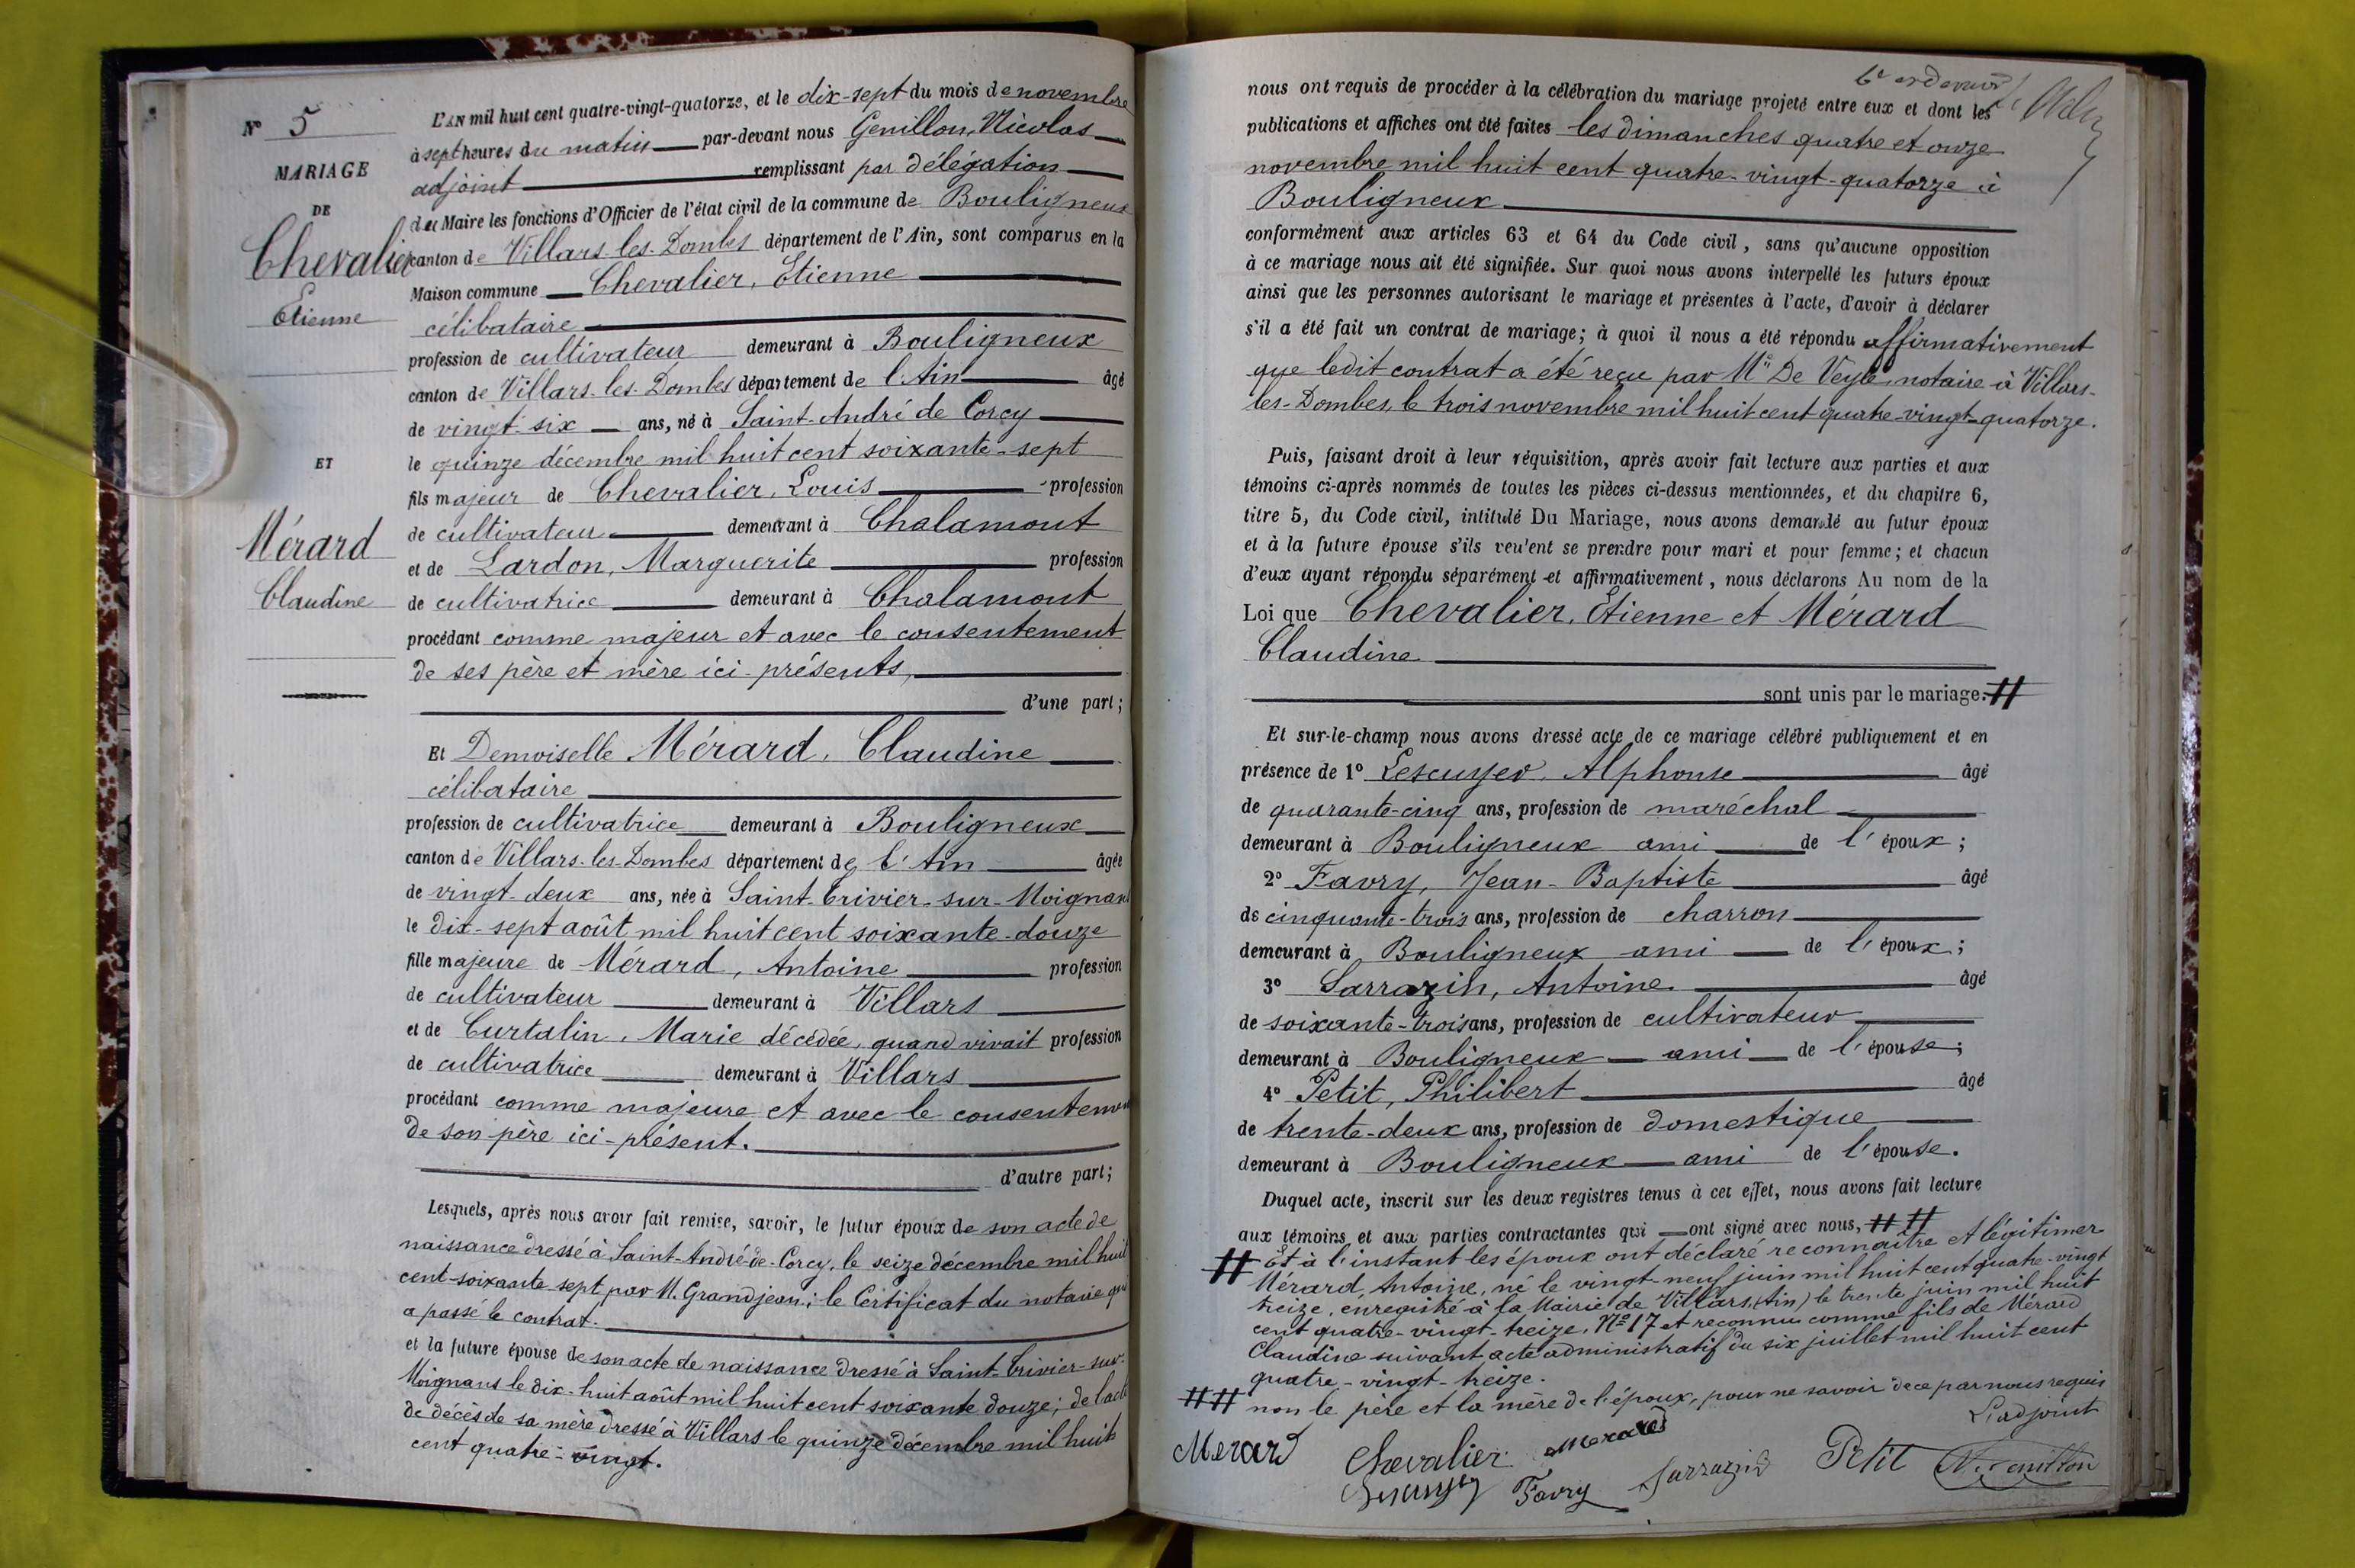 N° 5
MARIAGE
DE
Chevalier
Etienne
ET
Mérard
Claudine
L'AN mil huit cent quatre-vingt-quatorze, et le dix-sept du mois de novembre
à sept heures du matin par-devant nous Genillon, Nicolas
adjoint remplissant par délégation
du Maire les fonctions d'Officier de l'état civil de la commune de Bouligneux
canton de Villars-les-Dombes département de l'Ain, sont comparus en la
Maison commune Chevalier, Etienne
célibataire
profession de cultivateur demeurant à Bouligneux
canton de Villars-les-Dombes département de l'Ain âgé
de vingt-six ans, né à Saint-André de Corcy
le quinze décembre mil huit cent soixante-sept
fils majeur de Chevalier, Louis profession
de cultivateur demeurant à Chalamont
et de Lardon, Marguerite profession
de cultivatrice demeurant à Chalamont
procédant comme majeur et avec le consentement
de ses père et mère ici-présents,
d'une part;
Et Demoiselle Mérard, Claudine
célibataire
profession de cultivatrice demeurant à Bouligneux
canton de Villars-les-Dombes département de l'Ain âgée
de vingt-deux ans, née à Saint-Trivier-sur-Moignans
le dix-sept août mil huit cent soixante-douze
fille majeure de Mérard, Antoine profession
de cultivateur demeurant à Villars
et de Curtalin, Marie décédée, quand vivait profession
de cultivatrice demeurant à Villars
procédant comme majeure et avec le consentement
de son père ici-présent.
d'autre part;
Lesquels, après nous avoir fait remise, savoir, le futur époux de son acte de
naissance dressé à Saint-André-de-Corcy, le seize décembre mil huit
cent-soixante sept par M. Grandjean; le Certificat du notaire qui
a passé le contrat.
et la future épouse de son acte de naissance dressé à Saint-Trivier-sur-
Moignans le dix-huit août mil huit cent soixante douze; de l'acte
de décès de sa mère dressé à Villars le quinze décembre mil huit
cent quatre-vingt.
nous ont requis de procéder à la célébration du mariage projeté entre eux et dont les
publications et affiches ont été faites les dimanches quatre et onze
novembre mil huit cent quatre-vingt-quatorze à
Bouligneux
conformément aux articles 63 et 64 du Code civil, sans qu'aucune opposition
à ce mariage nous ait été signifiée. Sur quoi nous avons interpellé les futurs époux
ainsi que les personnes autorisant le mariage et présentes à l'acte, d'avoir à déclarer
s'il a été fait un contrat de mariage; à quoi il nous a été répondu affirmativement
que ledit contrat a été reçu par Me De Veyle notaire à Villars-
les-Dombes, le trois novembre mil huit cent quatre-vingt-quatorze.
Puis, faisant droit à leur réquisition, après avoir fait lecture aux parties et aux
témoins ci-après nommés de toutes les pièces ci-dessus mentionnées, et du chapitre 6,
titre 5, du Code civil, intitulé Du Mariage, nous avons demandé au futur époux
et à la future épouse s'ils veulent se prendre pour mari et pour femme; et chacun
d'eux ayant répondu séparément et affirmativement, nous déclarons Au nom de la
Loi que Chevalier, Etienne et Mérard
Claudine
sont unis par le mariage. #
Et sur-le-champ nous avons dressé acte de ce mariage célébré publiquement et en
présence de 1° Lescuyer, Alphonse âgé
de quarante-cinq ans, profession de maréchal
demeurant à Bouligneux ami de l'époux;
2° Favry, Jean-Baptiste âgé
de cinquante-trois ans, profession de charron
demeurant à Bouligneux ami de l'époux;
3° Sarrazin, Antoine âgé
de soixante-trois ans, profession de cultivateur
demeurant à Bouligneux ami de l'épouse;
4° Petit, Philibert âgé
de trente-deux ans, profession de domestique
demeurant à Bouligneux ami de l'épouse.
Duquel acte, inscrit sur les deux registres tenus à cet effet, nous avons fait lecture
aux témoins et aux parties contractantes qui ont signé avec nous, # #
# Et à l'instant les époux ont déclaré reconnaître et légitimer
Mérard, Antoine, né le vingt-neuf juin mil huit cent quatre-vingt
treize, enregistré à la Mairie de Villars (Ain) le trente juin mil huit
cent quatre-vingt-treize, N° 17 et reconnu comme fils de Mérard
Claudine suivant acte administratif du six juillet mil huit cent
quatre-vingt-treize.
# # non le père et la mère de l'époux, pour ne savoir de ce par nous requis
L'adjoint
Merard Chevalier Merard
Lescuyer Favry Sarrazin Petit N. Genillon